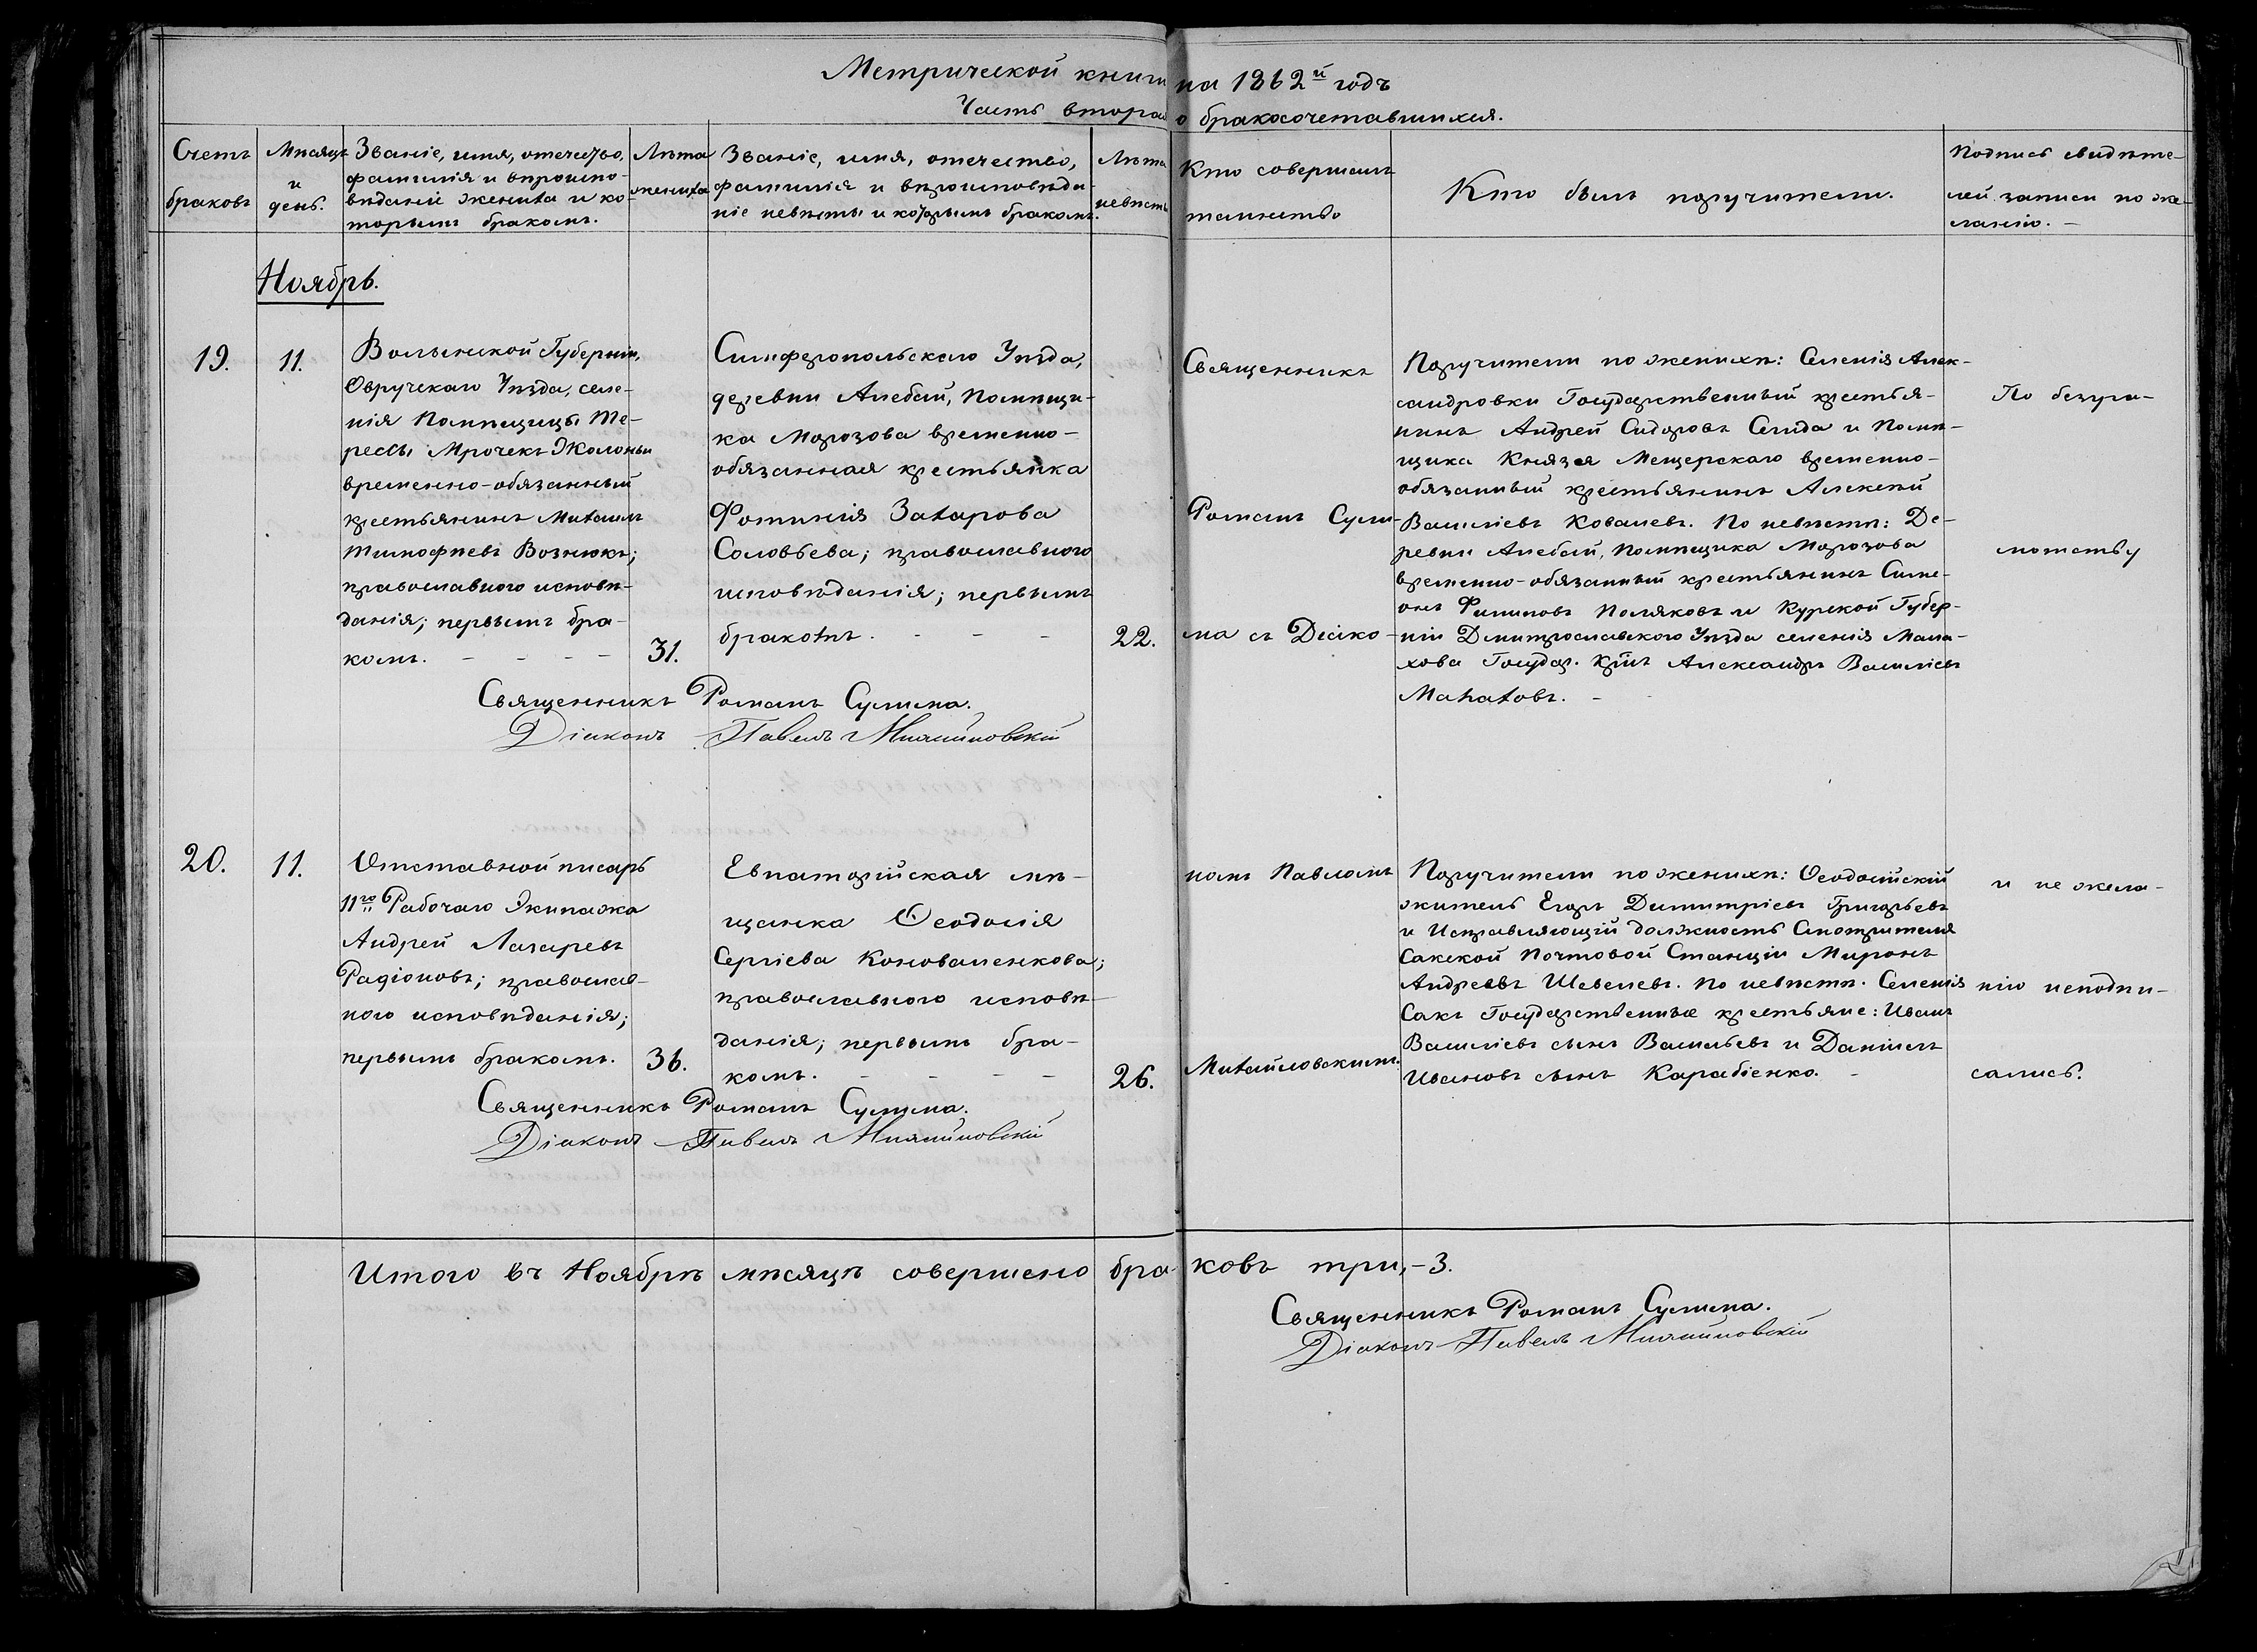 Метрической книги на 1862й годъ
Часть вторая о бракосочетавшихся.
Счетъ браковъ
Мѣсяцъ и день.
Званіе, имя, отечество,
фамилія и вѣроиспо-
вѣданіе жениха и ко-
торымъ бракомъ.
Лѣта жениха
Званіе, имя, отечество,
фамилія и вѣроисповѣда-
ніе невѣсты и которымъ бракомъ.
Лѣта невѣсты
Кто совершалъ
таинство
Кто былъ поручители.
Подпись свидѣте-
лей записи по же-
ланію. —
Ноябрь.
19.
11.
Волынской Губерніи,
Овручскаго Уѣзда, селе-
нія Помѣщицы Те-
ресы Мрочекъ
временно-обязанный
крестьянинъ Михаилъ
Тимофѣевъ Вознюкъ;
православнаго исповѣ-
данія; первымъ бра-
комъ. - - - -
31.
Симферопольскаго Уѣзда,
деревни Агебай, Помѣщи-
ка Морозова временно-
обязанная крестьянка
Фотинія Захарова
Соловьева; православного
исповѣданія; первымъ
бракомъ. - - -
22.
Священникъ
Романъ Сули-
ма съ Діако-
Поручители по женихѣ: Селенія Алек-
сандровки Государственный крестья-
нинъ Андрей Сидоровъ и Помѣ-
щика Князя Мещерскаго временно-
обязанный крестьянинъ Алексѣй
Василіевъ Ковалевъ. По невѣстѣ: Де-
ревни Агебай, Помѣщика Морозова
временно-обязанный крестьянинъ Симе-
онъ Филиповъ Поляковъ и Курской Губер-
ніи Дмитрославскаго Уѣзда селенія Мала-
хова Государ. крнъ Александръ Василіевъ
Малаховъ. -
По безгра-
мотству
Священникъ Романъ Сулима.
Діаконъ Павелъ Михайловскій
20.
11.
Отставной писарь
11го Рабочаго Экипажа
Андрей Лазаревъ
Радіоновъ; православ-
ного исповѣданія;
первымъ бракомъ.
36.
Евпаторійская мѣ-
щанка Ѳеодосія
Сергіева Коноваленкова;
православного исповѣ-
данія; первымъ бра-
комъ. - - - -
26.
номъ Павломъ
Михайловскимъ.
Поручители по женихѣ: Ѳеодосійскій
житель Егоръ Димитріевъ Григорьевъ
и Исправляющій должность Смотрителя
Сакской Почтовой Станціи Миронъ
Андреевъ Шевелевъ. По невѣстѣ. Селенія
Сакъ Государственные крестьяне: Иванъ
Василіевъ сынъ Васильевъ и Даніилъ
Ивановъ сынъ Карабіенко. -
и не жела-
нію неподпи-
сались.
Священникъ Романъ Сулима.
Діаконъ Павелъ Михайловскій
Итого въ Ноябрѣ мѣсяцѣ совершено браковъ три,-3.
Священникъ Романъ Сулима.
Діаконъ Павелъ Михайловскій